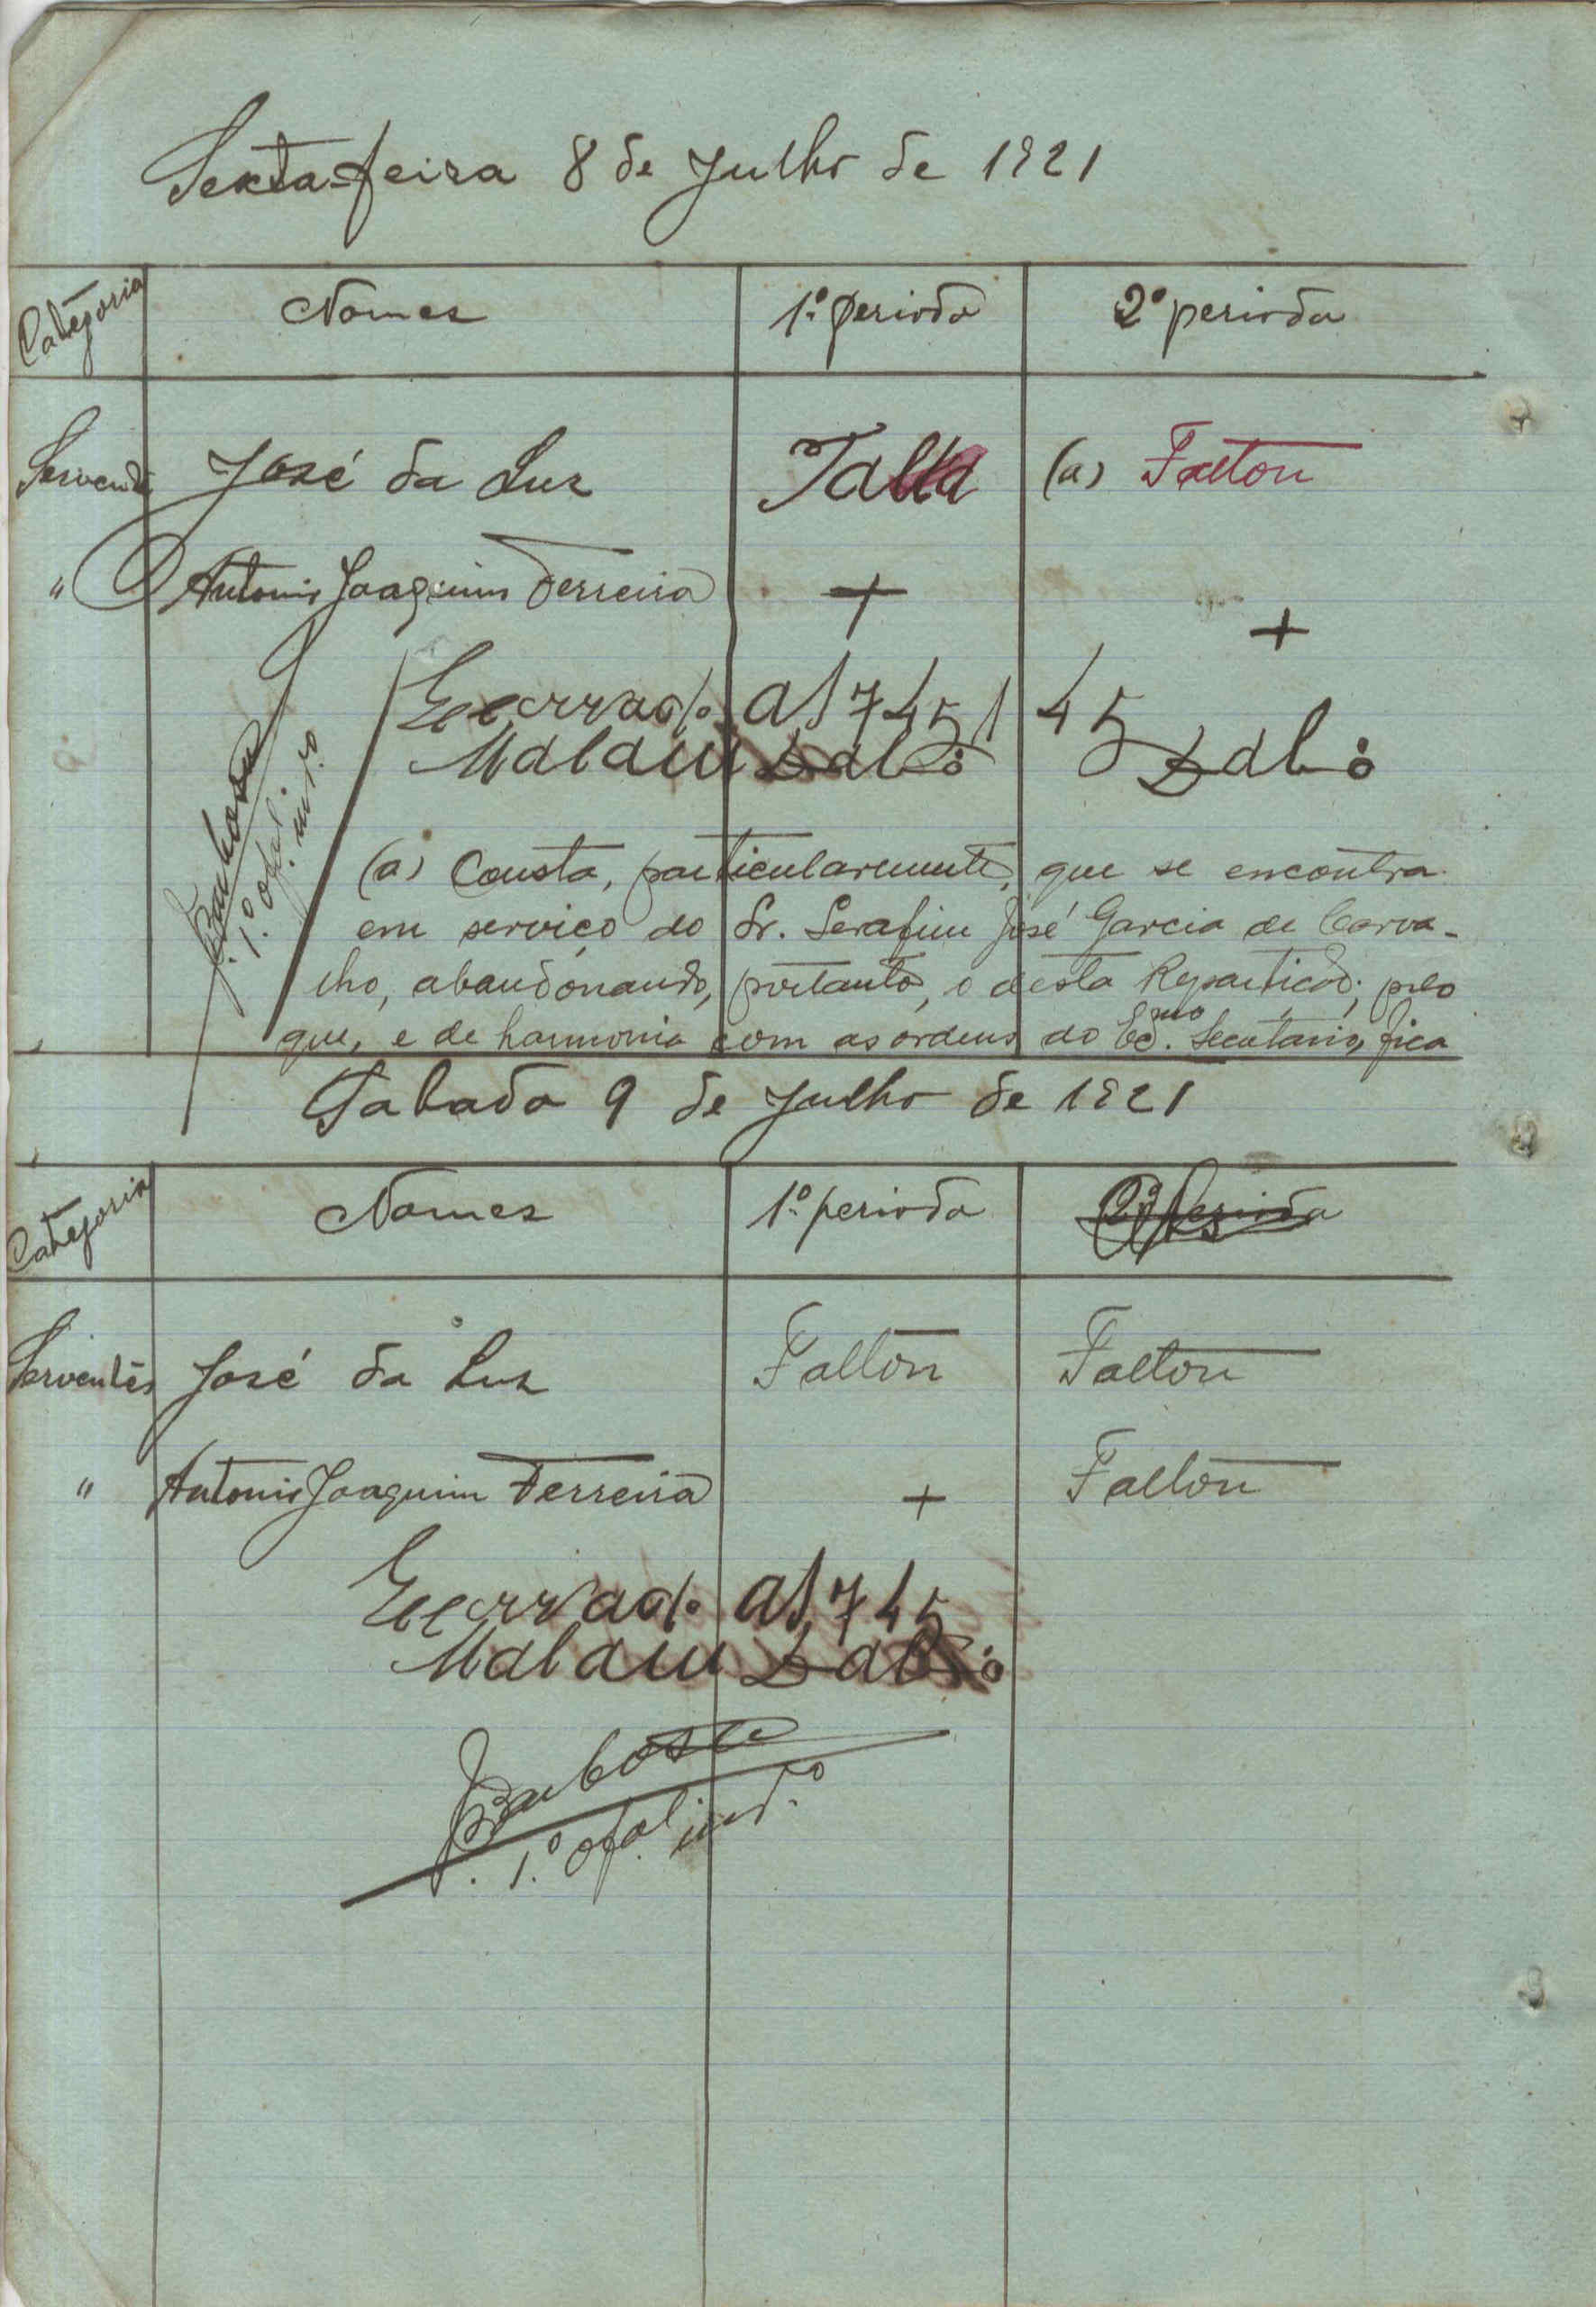 Sexta-feira 8 de Julho de 1921
Categoria Nomes 1.º periodo 2º periodo
Servente José da Luz Falta (a) Faltou
" Antonio Joaquim Ferreira + +
Eecrrado as 7 45 1 45
Malam Dabó Dabó
Barbosa
1.º ofal. int.º
(a) Consta, particularmente, que se encontra
em serviço do Sr. Serafim José Garcia de Carva-
lho, abandonando, portanto, o desta Repartição; pelo
que, e de harmonia com as ordens do Ex.mo Secretario, fica
Sabado 9 de Julho de 1921
Categoria Nomes 1.º periodo 2º periodo
Serventes José da Luz Faltou Faltou
" Antonio Joaquim Ferreira + Faltou
Eecrrado as 7 45
Malam Dabó
Barbosa
1.º ofal int.º